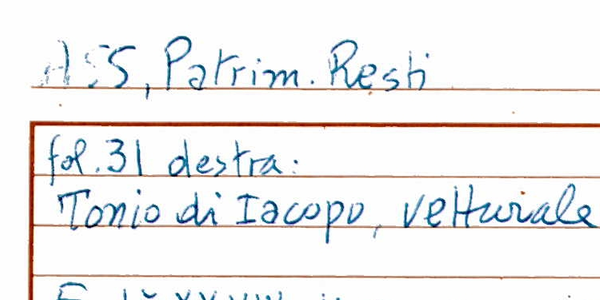 ASS, Patrim. Resti
fol. 31 destra:
Tonio di Iacopo, vetturiale